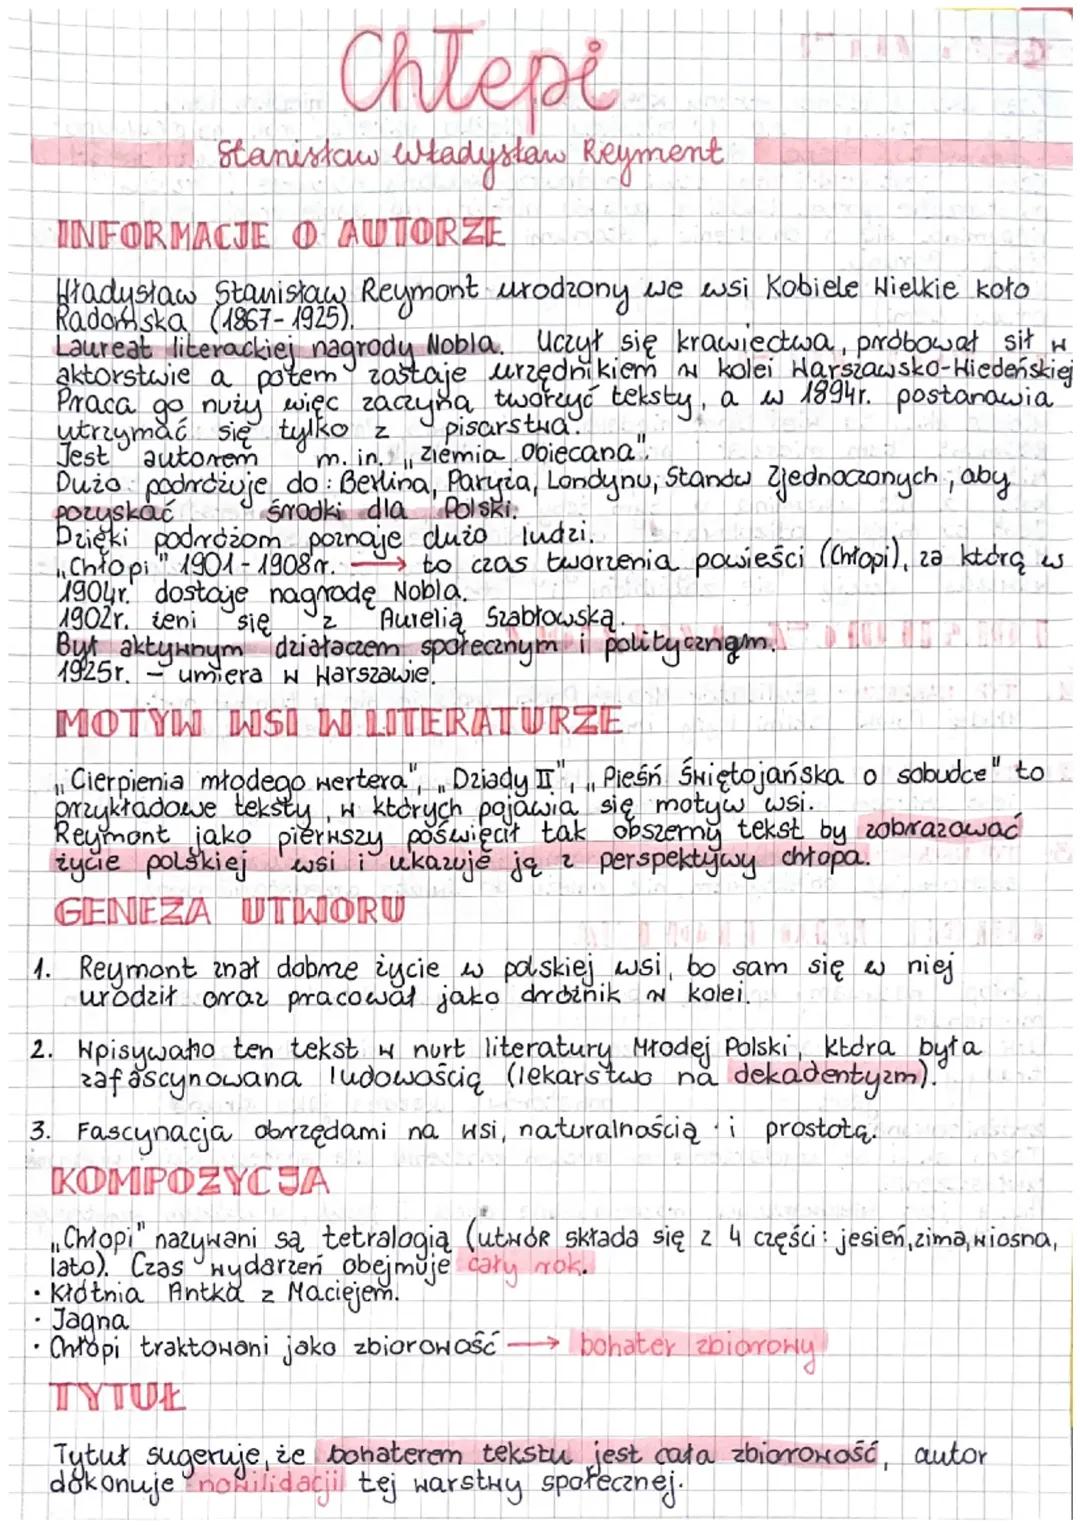 Chłopi
Stanisław Władysław Reymont
INFORMACJE O AUTORZE
Władysław Stanisław Reymont urodzony we wsi Kobiele Wielkie koło
Radomska (1867-1925).
Laureat literackiej nagrody Nobla. Uczył się krawiectwa, próbował sił w
aktorstwie a potem zostaje urzędnikiem w kolei Warszawsko-Wiedeńskiej
Praca go nuży więc zaczyna tworzyć teksty, a w 1894r. postanawia
utrzymać się tylko z pisarstwa.
Jest autorem m.in. „Ziemia Obiecana".
Dużo podróżuje do: Berlina, Paryża, Londynu, Stanów Zjednoczonych, aby
pozyskać środki dla Polski.
Dzięki podróżom poznaje dużo ludzi.
„Chłopi" 1901-1908r. → to czas tworzenia powieści (Chłopi), za którą w
1904r. dostaje nagrodę Nobla.
1902r. żeni się z Aurelią Szabłowską.
Był aktywnym działaczem społecznym i politycznym.
1925r. - umiera w Warszawie.
MOTYW WSI W LITERATURZE
„Cierpienia młodego wertera", „Dziady II", „Pieśń Świętojańska o sobudce" to
przykładowe teksty, w których pojawia się motyw wsi.
Reymont jako pierwszy poświęcił tak obszerny tekst by zobrazować
życie polskiej wsi i ukazuje ją z perspektywy chłopa.
GENEZA UTWORU
1. Reymont znał dobrze życie w polskiej wsi, bo sam się w niej
urodził oraz pracował jako dróżnik w kolei.
2. Wpisywano ten tekst w nurt literatury Młodej Polski, która była
zafascynowana ludowością (lekarstwo na dekadentyzm).
3. Fascynacja obrzędami na wsi, naturalnością i prostotą.
KOMPOZYCJA
„Chłopi" nazywani są tetralogią (utwór składa się z 4 części: jesień, zima, wiosna,
lato). Czas wydarzeń obejmuje cały rok.
• Kłótnia Antka z Maciejem.
• Jagna
• Chłopi traktowani jako zbiorowość → bohater zbiorowy
TYTUŁ
Tytuł sugeruje, że bohaterem tekstu jest cała zbiorowość, autor
dokonuje nowilidacji tej warstwy społecznej.